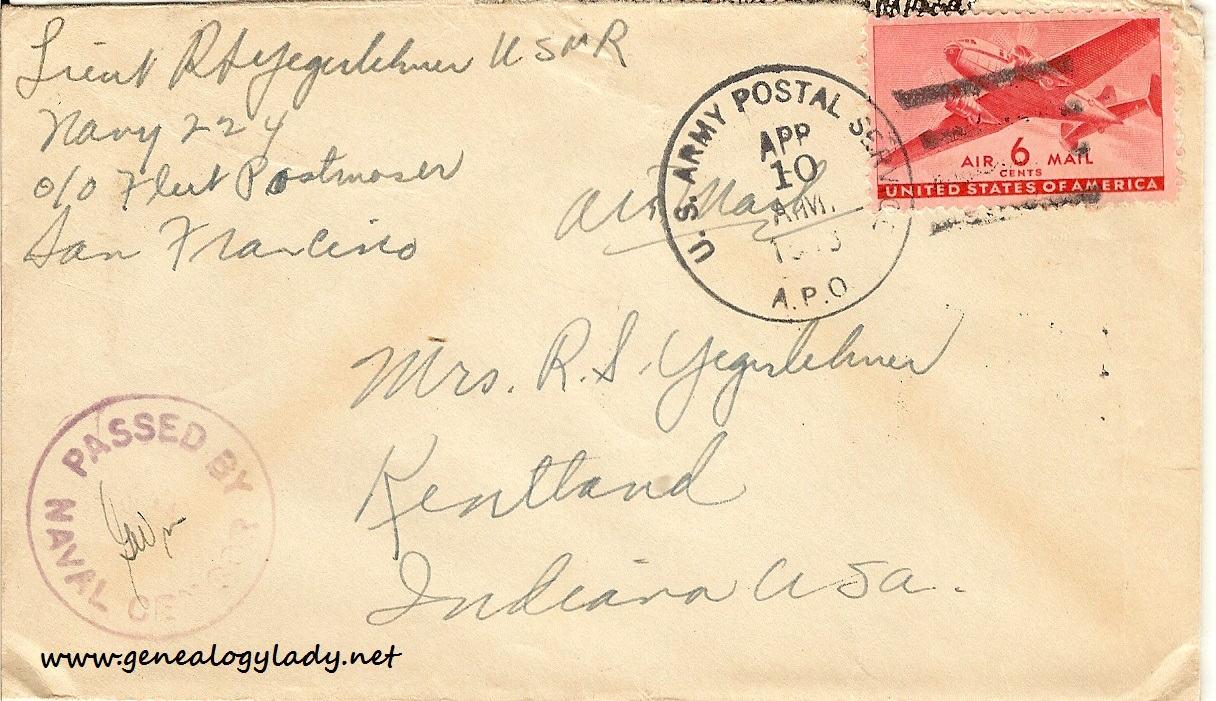 Lieut RSYegerlehner USNR
Navy 224
c/o Fleet Postmaser
San Francisco
Air Mail
U.S. ARMY POSTAL SERVICE
APR
10
AM
A.P.O
AIR 6 MAIL
CENTS
UNITED STATES OF AMERICA
Mrs. R. S. Yegerlehner
Kentland
Indiana USA.
PASSED BY
NAVAL CENSOR
www.genealogylady.net